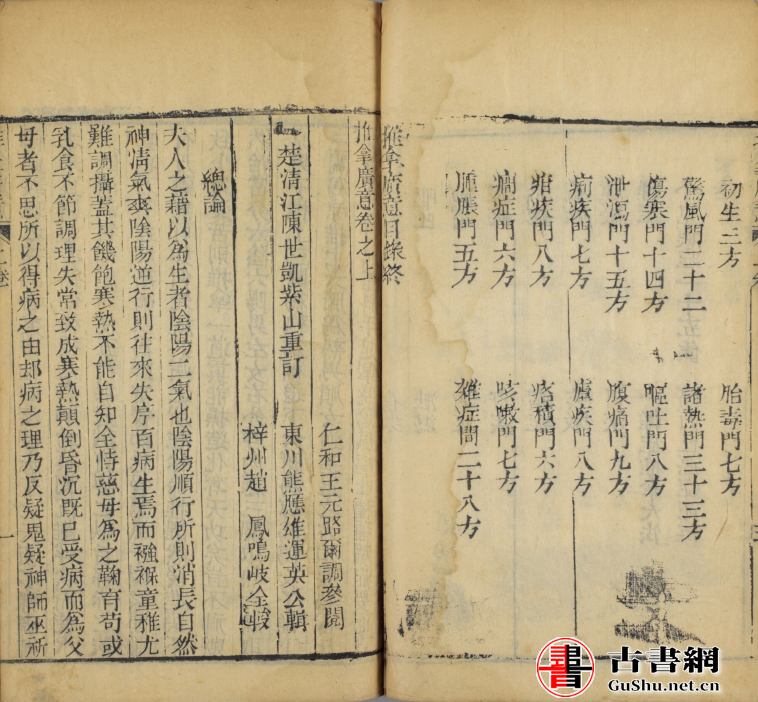 初生三方
胎毒門七方
驚風門二十二
諸熱門三十三方
傷寒門十四方
嘔吐門八方
泄瀉門十五方
腹痛門九方
痢疾門七方
瘧疾門八方
疳疾門八方
痞積門六方
癇症門六方
咳嗽門七方
腫脹門五方
雜症門二十八方
推拿廣意目錄終
推拿廣意卷之上
仁和王元路爾調參閱
楚清江陳世凱紫山重訂
東川熊應雄運英公輯
梓州趙 鳳鳴岐仝
總論
夫人之藉以為生者陰陽二氣也陰陽順行所則消長自然
神清氣爽陰陽道行則往來失序百病生焉而襁褓童稚尤
難調攝蓋其饑飽寒熱不能自知全恃慈母為之鞠育苟或
乳食不節調理失常致成寒熱顛倒昏沉既已受病而為父
母者不思所以得病之由却病之理乃反疑鬼疑神師巫祈
書
古書網
GuShu.net.cn